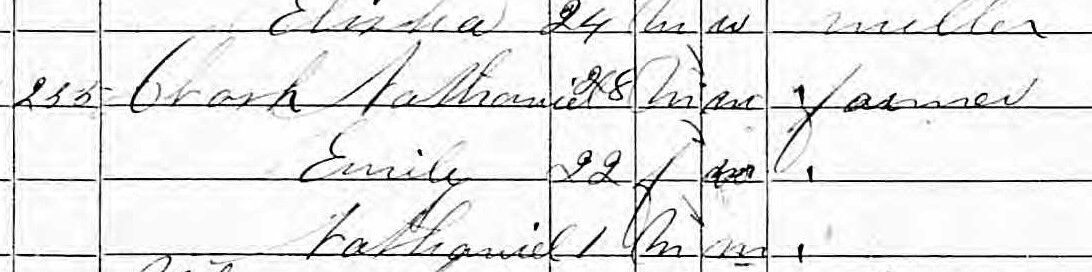 Elisha 24 m w miller
255 Nathaniel 28 m m farmer
Emily 22 f
Nathaniel 1 m m